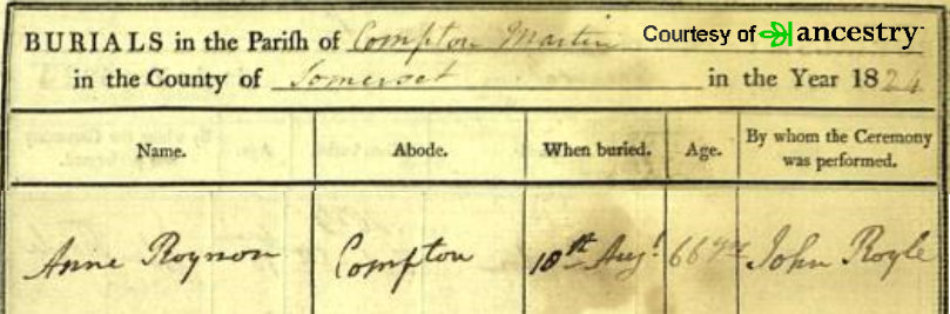 BURIALS in the Pariſh of Compton Martin
Courtesy of ancestry
in the County of Somerset in the Year 1824
Name. Abode. When buried. Age. By whom the Ceremony was performed.
Anne Roynon Compton 18th Augt 66 yrs John Royle